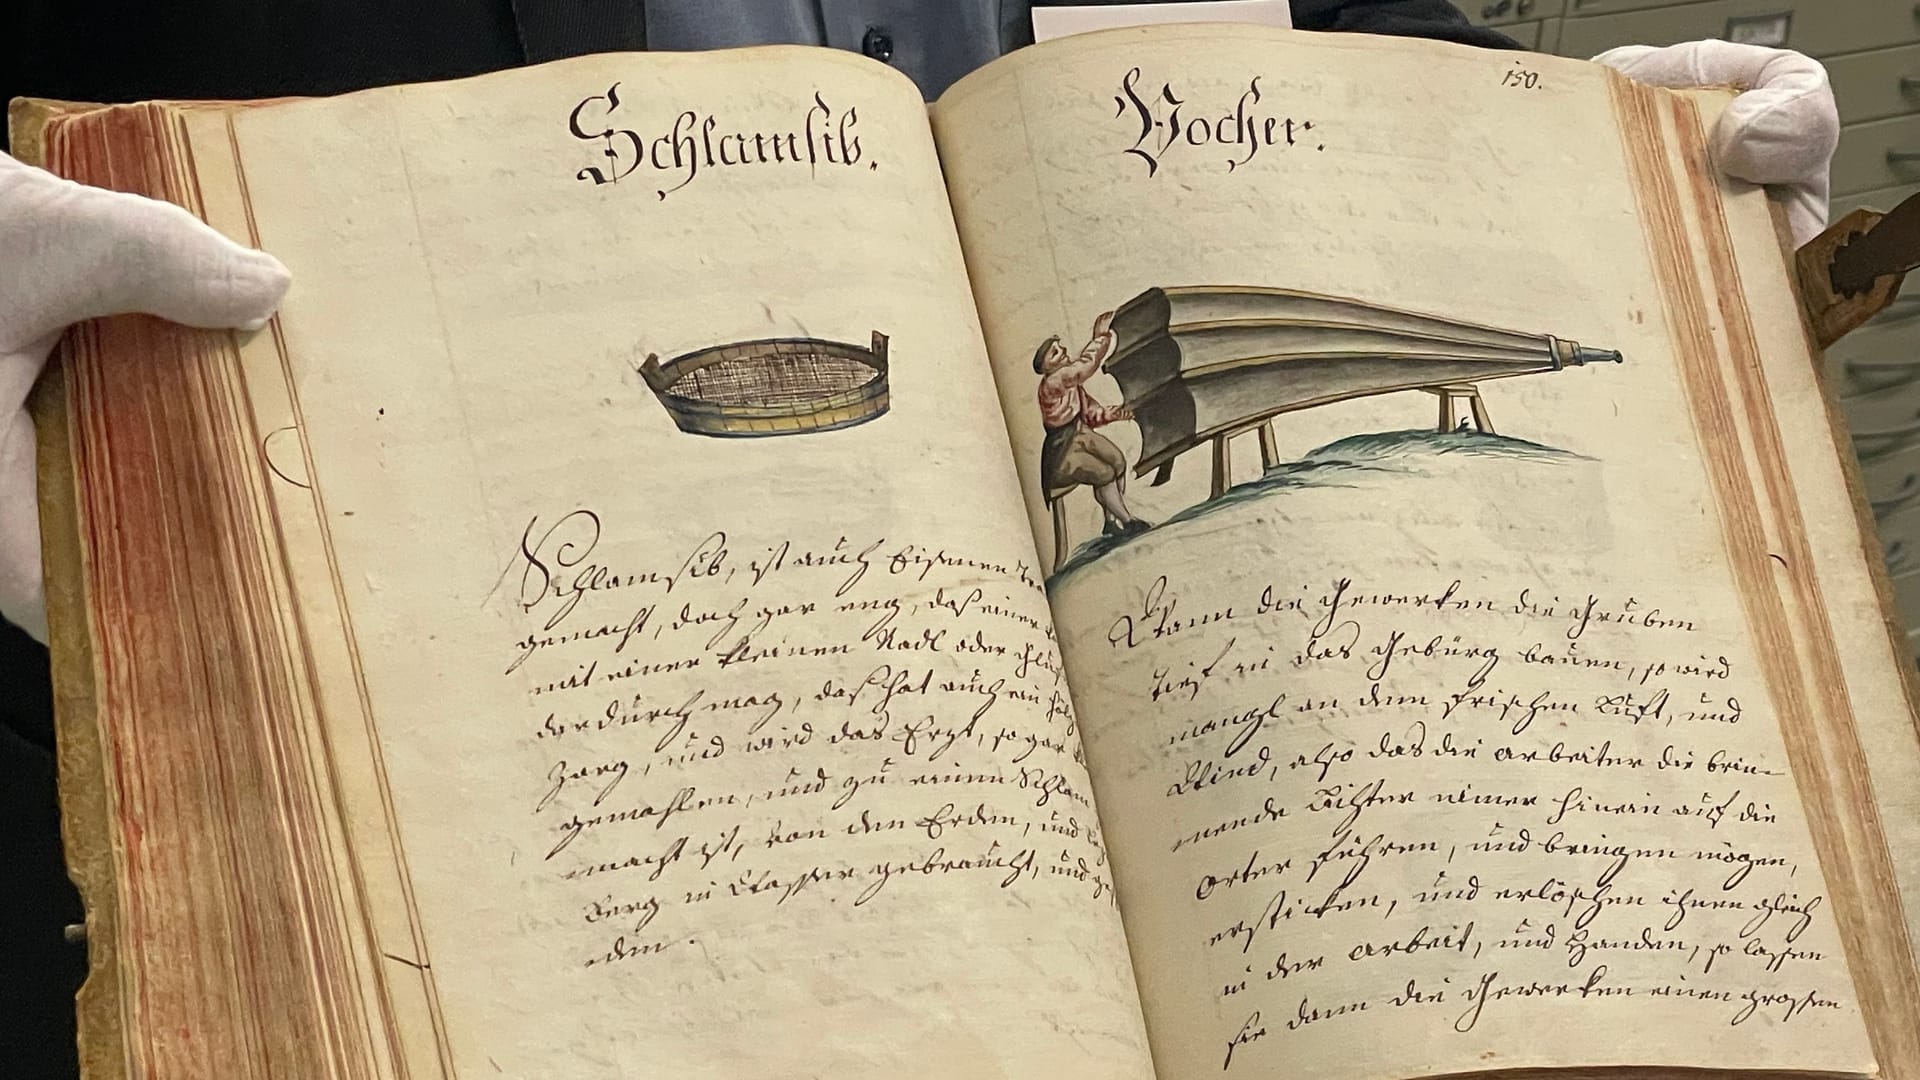 Schlamsib.
Schlamsib, ist auch Eisenen
gemacht, doch gar eng, das einer
mit einer kleinen Nadl oder
dardurch mag, das hat auch ein
Zarg, und wird das Erzt, so gar
gemahlen, und zu einem Schlam
macht ist, von den Erden, und
Berg in Wasser gebraucht, und
eden.
150.
Pocher.
Wann die Gewerken die Gruben
tief in das Gebürg bauen, so wird
mangl an dem frischen Luft, und
Wind, also das die arbeiter die brin-
nende Liechter nimer hinein auf die
orter führen, und bringen mögen,
ersticken, und erlöschen ihnen gleich
in der arbeit, und Handen, so lassen
sie dann die Gewerken einen grossen